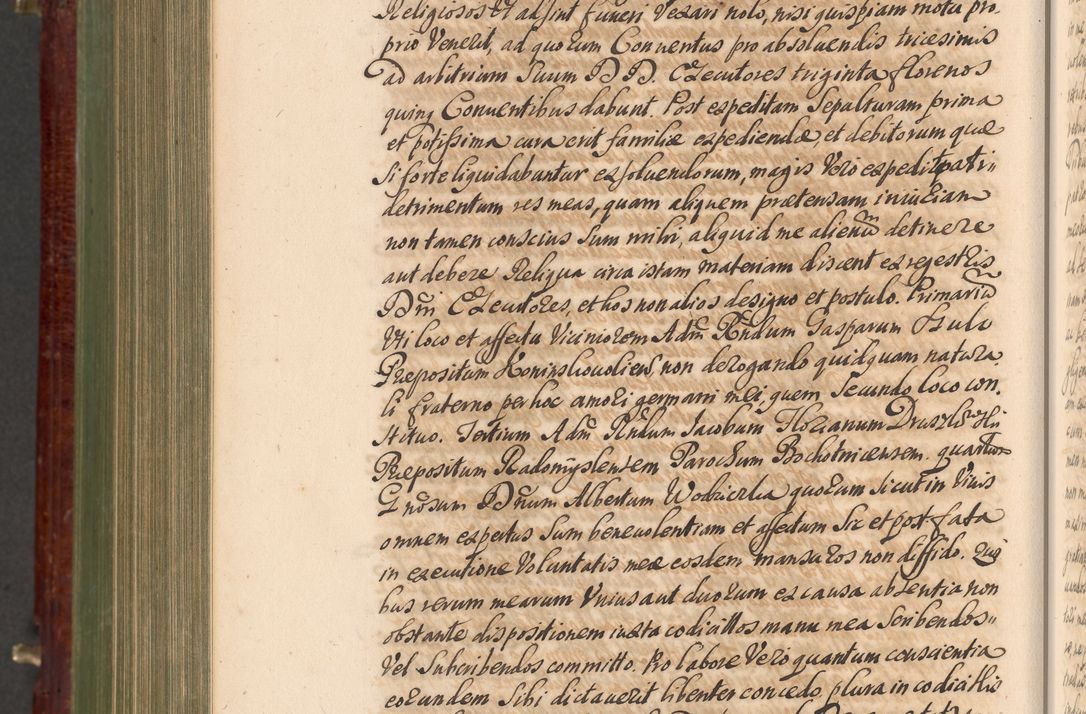 Religiosos et adsint funeri vexari nolo, nisi quispiam motu pro
prio Venerit, ad quorum Conventus pro absoluendis tricesimis
ad arbitrium Suum D D. Executores triginta florenos
quinq Conuentibus dabunt. Post expeditam Sepulturam prima
et potissima cura erit familiæ expediendæ, et debitorum quæ
Si forte liquidabantur exsoluendorum, magis Vero expedit pati
detrimentum res meas, quam aliquem prætensam iniuriam
non tamen conscius Sum mihi, aliquid me alienũ detinere
aut debere Reliqua circa istam materiam discent ex regestris
Dñi Executores, et hos non alios designo et postulo. Primariũ
Uti loco et affectu Viciniorem Adm Rndum Gasparum
Præpositum non derogando quidquam natura
li fraterno per hoc amori germani mei, quem Secundo loco con
stituo. Tertium Adm Rndum Iacobum Florianum
Præpositum Radomyslensem Parochum Bochotnicensem. quartum
Gnosum Dnum Albertum quorum Sicut in Viuis
omnem expertus Sum beneuolentiam et affectum Sic et post fata
in executione Voluntatis meæ eosdem mansuros non diffido. Qui
bus rerum mearum Vnius aut duorum ex causa absentia non
obstante dispositionem iuxta codicillos manu mea Scribendos
Vel Subscribendos committo. Pro labore Vero quantum conscientia
eorundem Sibi dictauerit libenter concedo, plura in codicillis